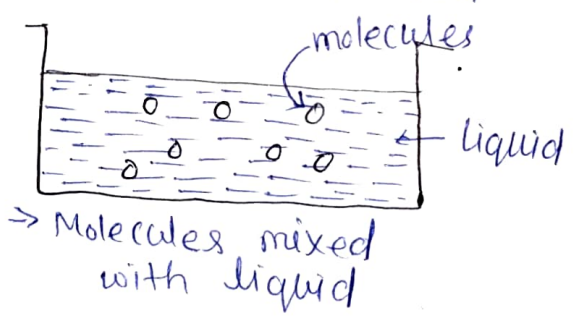 molecules
liquid
⇒ Molecules mixed
with liquid